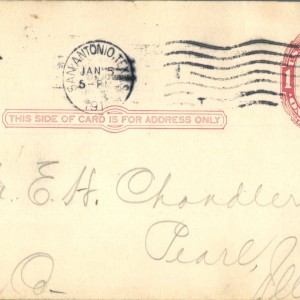 SAN ANTONIO, TEX.
JAN 5
THIS SIDE OF CARD IS FOR ADDRESS ONLY
E. H. Chandler
Pearl,